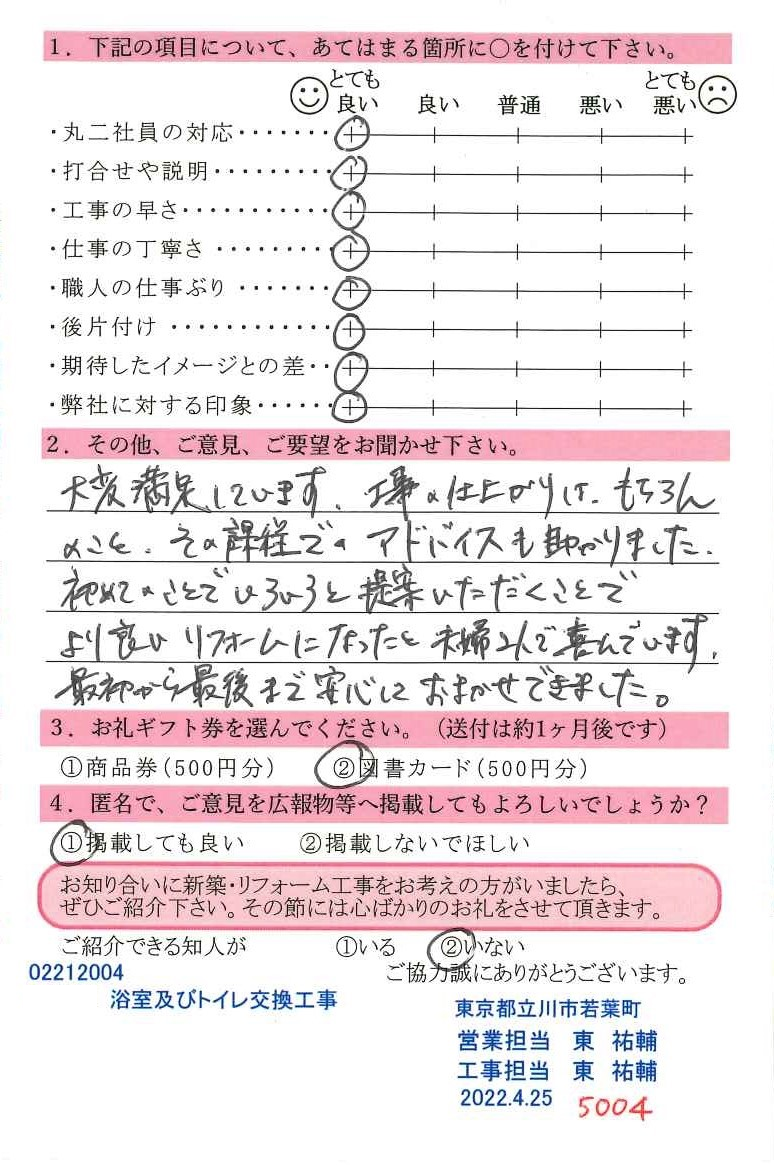 1．下記の項目について、あてはまる箇所に○を付けて下さい。
とても良い　良い　普通　悪い　とても悪い
・丸二社員の対応・・・・・・・
・打合せや説明・・・・・・・・・
・工事の早さ・・・・・・・・・・・
・仕事の丁寧さ・・・・・・・・・
・職人の仕事ぶり・・・・・・・
・後片付け・・・・・・・・・・・・
・期待したイメージとの差・・
・弊社に対する印象・・・・・・
2．その他、ご意見、ご要望をお聞かせ下さい。
大変満足しています。工事の仕上がりは、もちろん
のこと、その課程でのアドバイスも助かりました。
初めてのことでいろいろと提案いただくことで
より良いリフォームになったと夫婦2人で喜んでいます。
最初から最後まで安心しておまかせできました。
3．お礼ギフト券を選んでください。（送付は約1ヶ月後です）
①商品券（500円分）　②図書カード（500円分）
4．匿名で、ご意見を広報物等へ掲載してもよろしいでしょうか？
①掲載しても良い　②掲載しないでほしい
お知り合いに新築・リフォーム工事をお考えの方がいましたら、
ぜひご紹介下さい。その節には心ばかりのお礼をさせて頂きます。
ご紹介できる知人が　①いる　②いない
02212004　ご協力誠にありがとうございます。
浴室及びトイレ交換工事
東京都立川市若葉町
営業担当　東　祐輔
工事担当　東　祐輔
2022.4.25　5004